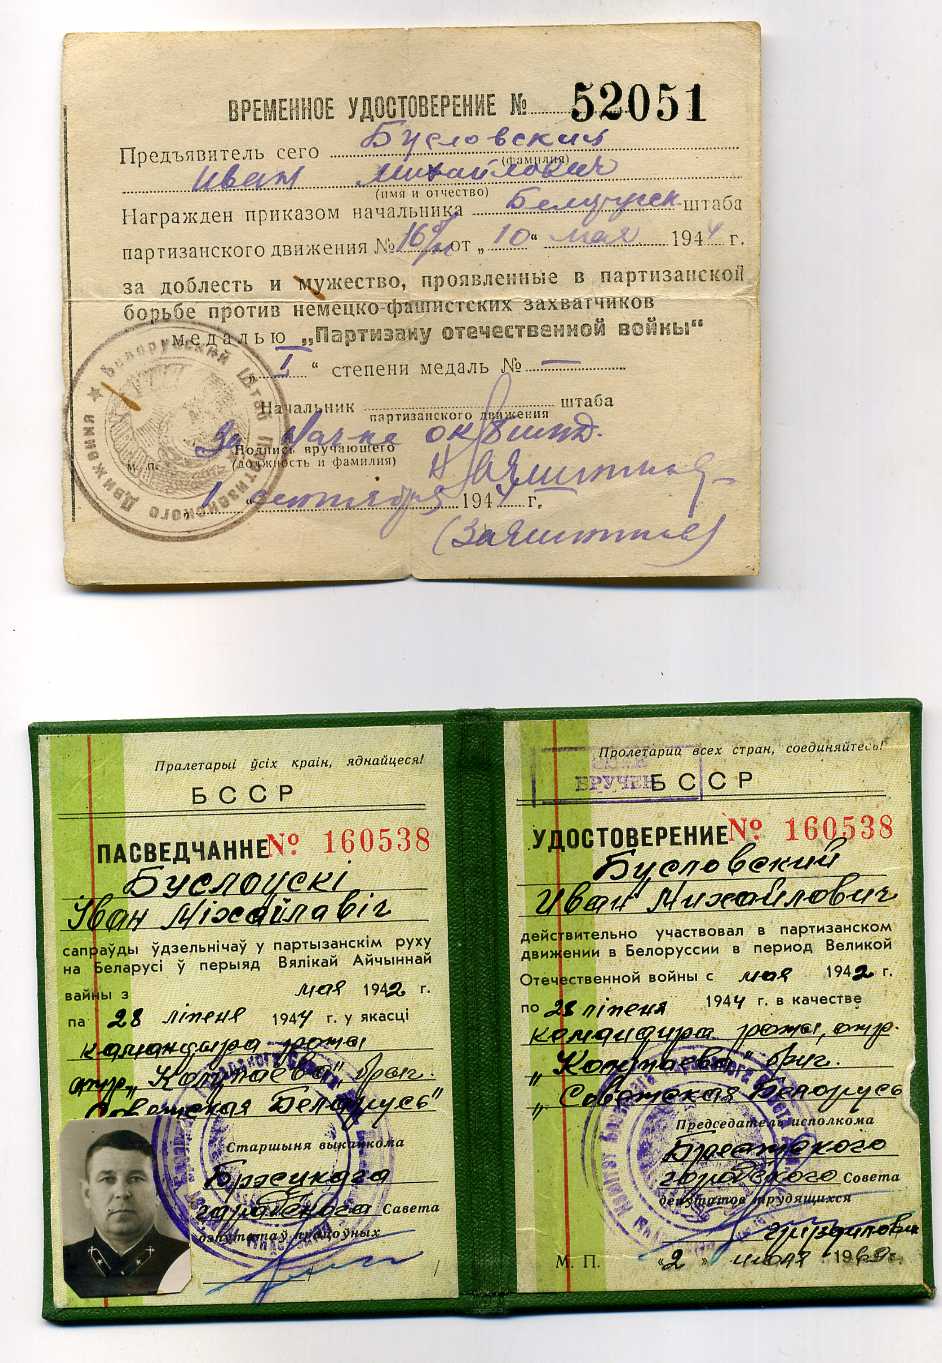 ВРЕМЕННОЕ УДОСТОВЕРЕНИЕ № 52051
Предъявитель сего Бусловский
(фамилия)
Иван Михайлович
(имя и отчество)
Награжден приказом начальника Белорусск штаба
партизанского движения № от „10“ мая 1944 г.
за доблесть и мужество, проявленные в партизанской
борьбе против немецко-фашистских захватчиков
медалью „Партизану отечественной войны“
„I“ степени медаль № —
Начальник штаба
партизанского движения
За
Подпись вручающего
(должность и фамилия)
м. п.
„1“ сентября 1944 г.
Белорусский Штаб Партизанского Движения
Пралетарыі ўсіх краін, яднайцеся!
БССР
ПАСВЕДЧАННЕ № 160538
Буслоўскі
Іван Міхайлавіч
сапраўды ўдзельнічаў у партызанскім руху
на Беларусі ў перыяд Вялікай Айчыннай
вайны з мая 1942 г.
па 28 ліпеня 1944 г. у якасці
камандыра роты
отр. „Котпаева“ брыг.
„Советская Беларусь“
Старшыня выканкома
Брэсцкага
гарадскога Савета
дэпутатаў працоўных
Пролетарии всех стран, соединяйтесь!
БССР
ВРУЧЕН
УДОСТОВЕРЕНИЕ № 160538
Бусловский
Иван Михайлович
действительно участвовал в партизанском
движении в Белоруссии в период Великой
Отечественной войны с мая 1942 г.
по 28 ліпеня 1944 г. в качестве
командира роты, отр.
„Котпаева“ бриг.
„Советская Белорусь
Председатель исполкома
Брестского
городского Совета
депутатов трудящихся
М. П. „2„ июля 1969 г.